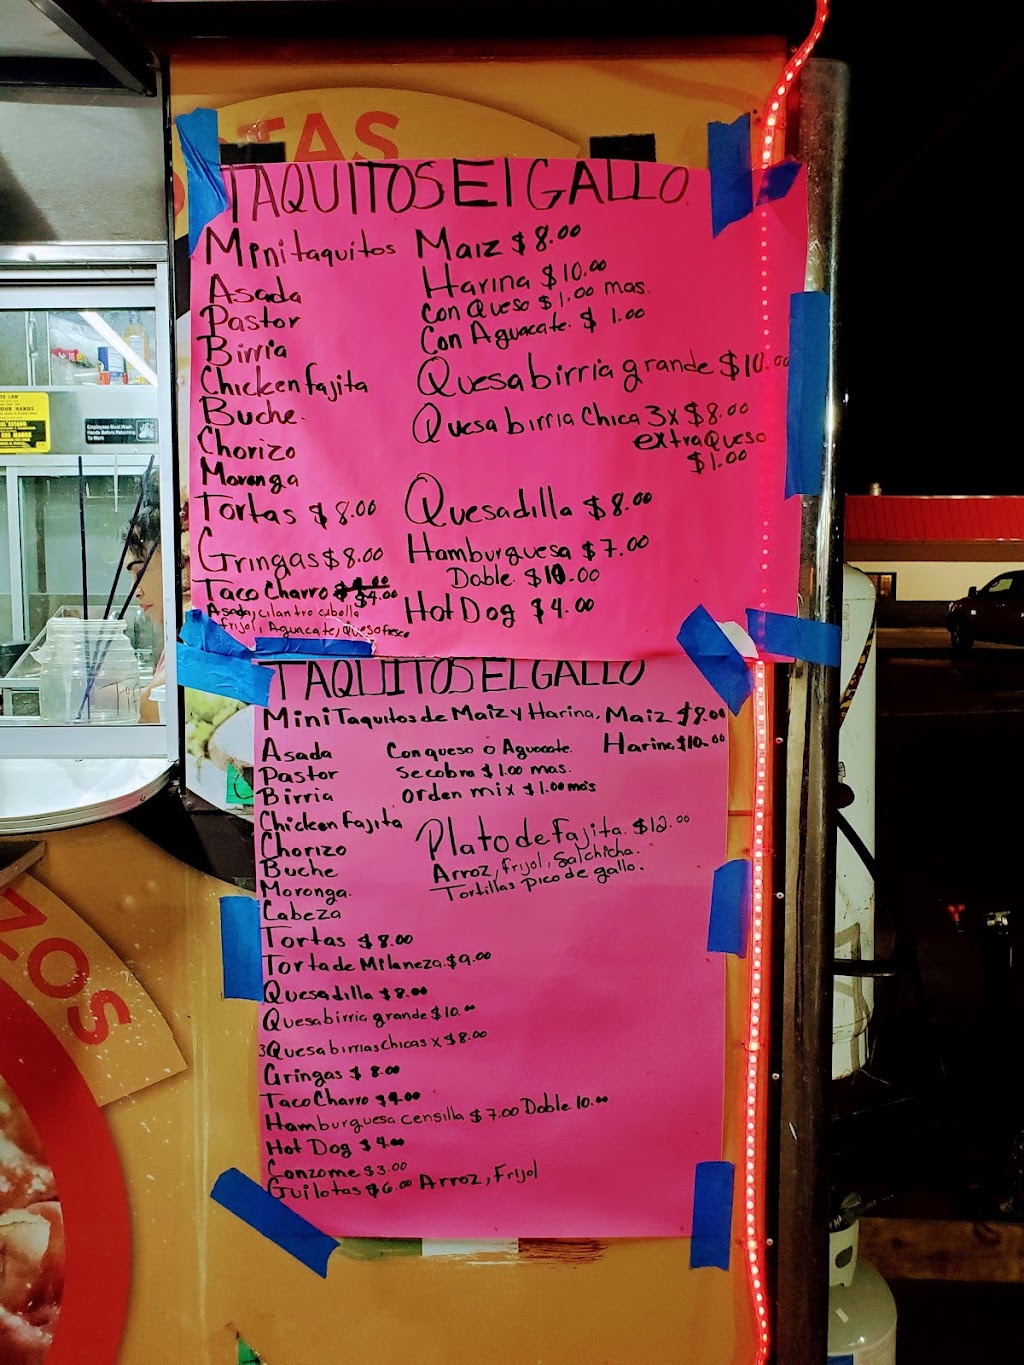 TAS
TAQUITOS El GALLO
Mini taquitos Maiz $8.00
Asada Harina $10.00
Pastor Con Queso $1.00 mas.
Birria Con Aguacate. $1.00
Chicken fajita Quesabirria grande $10.00
Buche. Quesabirria Chica 3x $8.00
Chorizo extra Queso
Moronga $1.00
Tortas $8.00 Quesadilla $8.00
Gringas $8.00 Hamburguesa $7.00
Doble. $10.00
Taco Charro $4.00 Hot Dog $4.00
Asada, cilantro cebolla
frijol, Aguacate, queso fresco
TAQUITOS EL GALLO
Mini Taquitos de Maiz y Harina, Maiz $8.00
Asada Con queso o Aguacate. Harina $10.00
Pastor Se cobra $1.00 mas.
Birria Orden mix $1.00 mas
Chicken Fajita Plato de Fajita. $12.00
Chorizo Arroz, frijol, Salchicha.
Buche Tortillas pico de gallo.
Moronga.
Cabeza
Tortas $8.00
Torta de Milaneza. $9.00
Quesadilla $8.00
Quesabirria grande $10.00
3 Quesabirrias chicas x $8.00
Gringas $8.00
Taco Charro $4.00
Hamburguesa censilla $7.00 Doble 10.00
Hot Dog $4.00
Conzome $3.00
Guilotas $6.00 Arroz, Frijol
ZOS
Employees Must Wash
Hands Before Returning
To Work